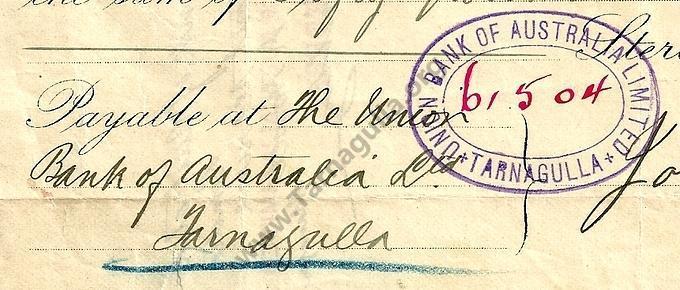 the sum of
Sterl
Payable at The Union
Bank of Australia Ltd
Tarnagulla
UNION BANK OF AUSTRALIA LIMITED
6 . 5 04
TARNAGULLA
www.Tarnagulla.org